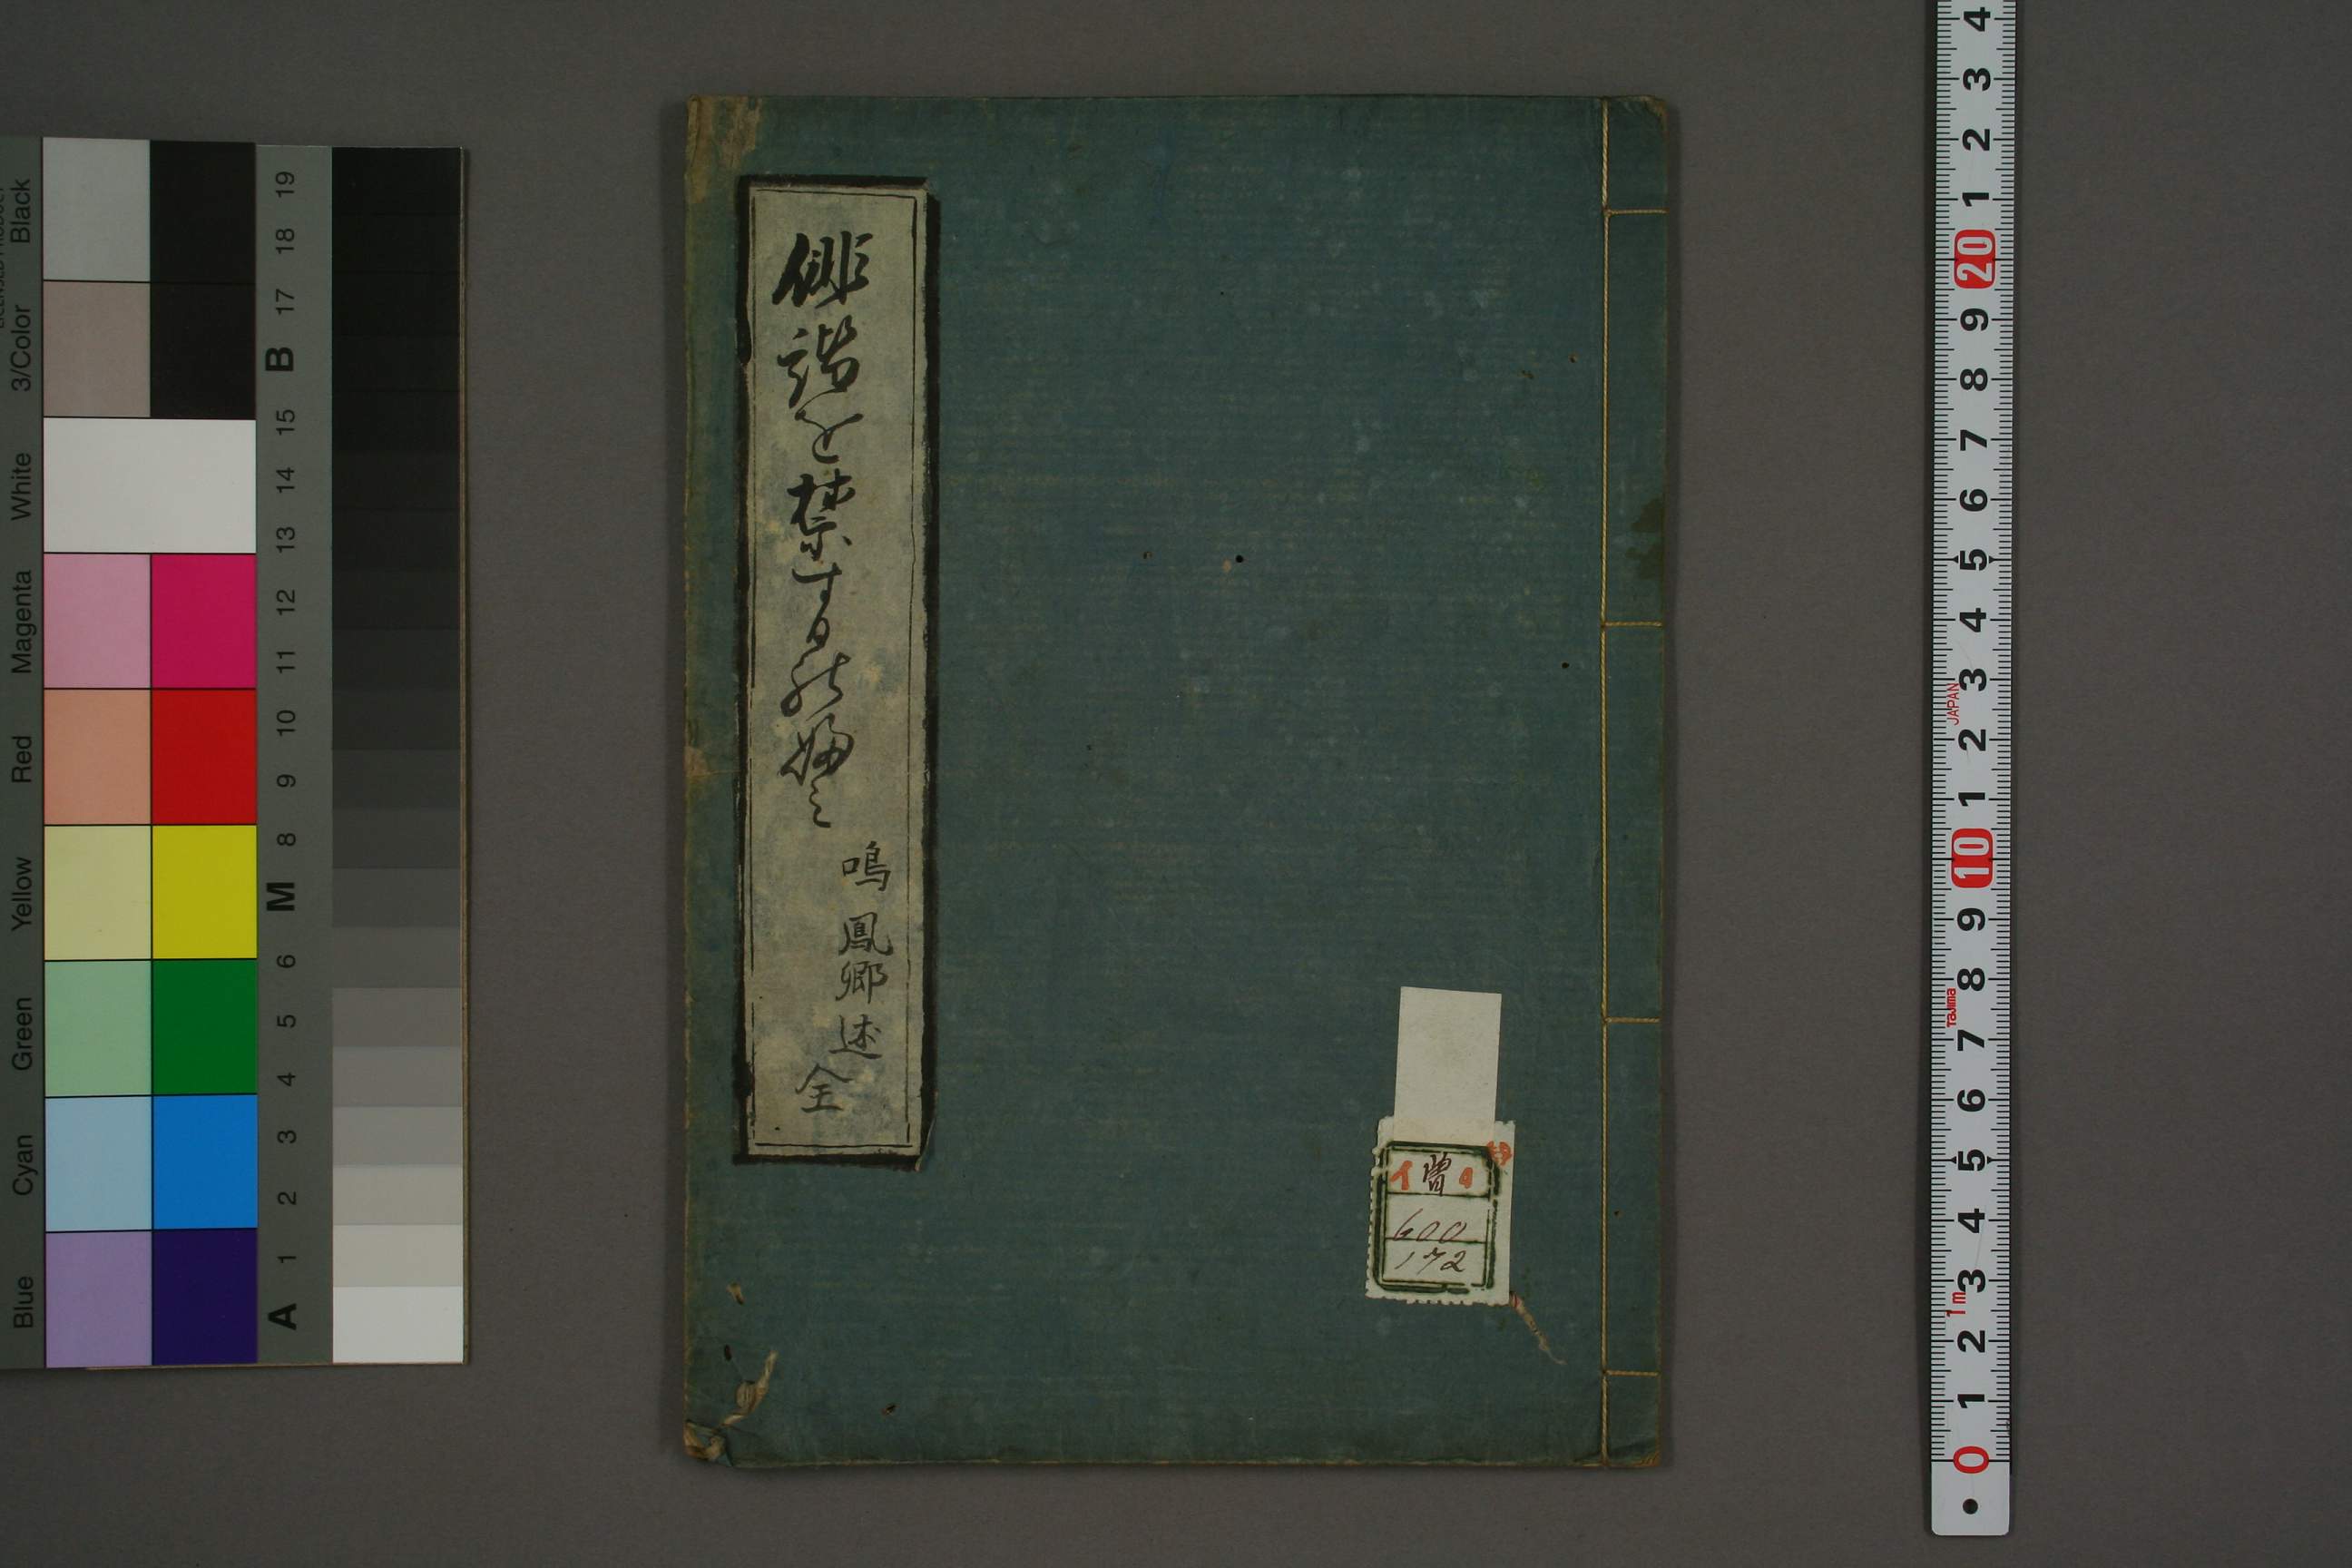 俳諧を禁する能婦ミ
鳴鳳郷述
全
イ 曽 4
600
172
Black
3/Color
White
Magenta
Red
Yellow
Green
Cyan
Blue
19
18
17
B
15
14
13
12
11
10
9
8
M
6
5
4
3
2
1
A
4
3
2
1
20
9
8
7
6
5
4
3
JAPAN
2
1
10
9
8
Tajima
7
6
5
4
3
1m
2
1
0